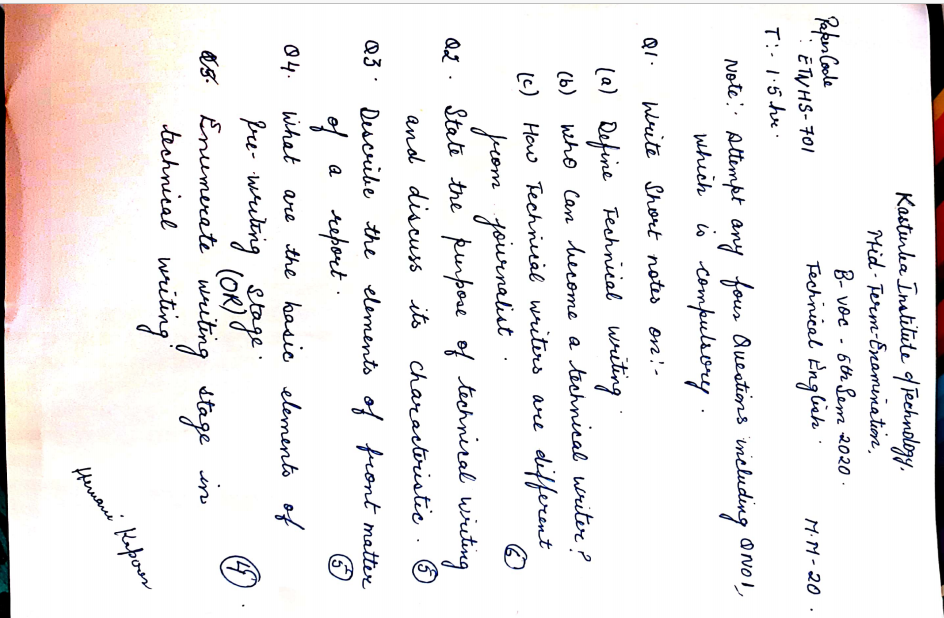 Kasturba Institute of Technology.
Mid-Term-Examination.
B-voc - 5th Sem 2020.
Paper Code
: ETVHS-701
Technical English.
M.M-20.
T:- 1.5 hr.
Note:- Attempt any four Questions including QNo1,
which is compulsory.
Q1. Write Short notes on:-
(a) Define Technical writing.
(b) who can become a technical writer?
(c) How Technical writers are different
from journalist. (6)
Q2. State the purpose of technical writing
and discuss its characteristic. (5)
Q3. Describe the elements of front matter
of a report. (5)
Q4. What are the basic elements of
Pre-writing Stage.
(OR)
Q5. Enumerate writing stage in
technical writing. (4).
Kapoor